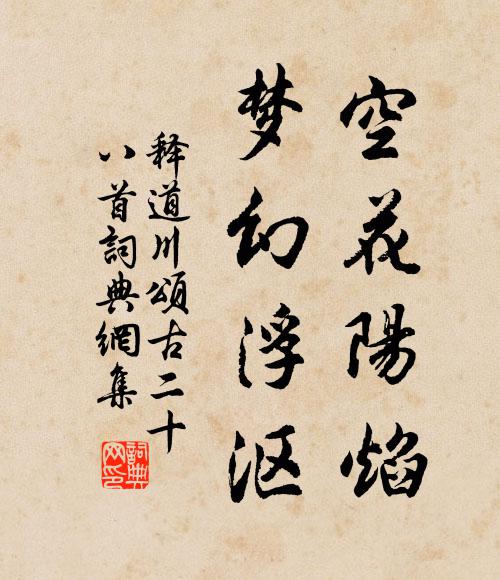 空花陽焰
梦幻浮沤
释道川頌古二十
八首詞典網集
詞典
网印